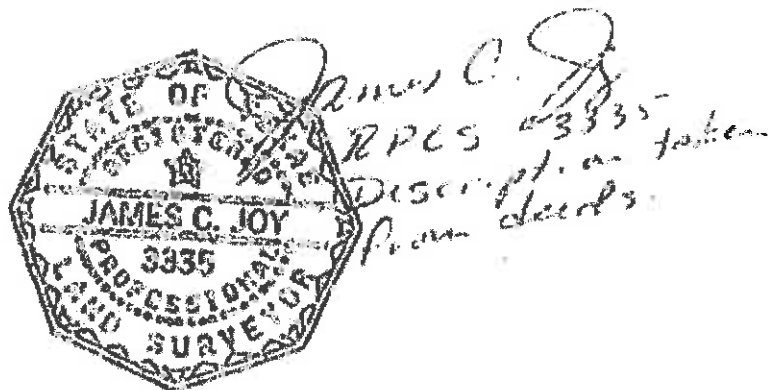 STATE OF TEXAS
REGISTERED
JAMES C. JOY
3335
PROFESSIONAL
LAND SURVEYOR
James C. Joy
RPLS #3335
Description taken
from deeds.